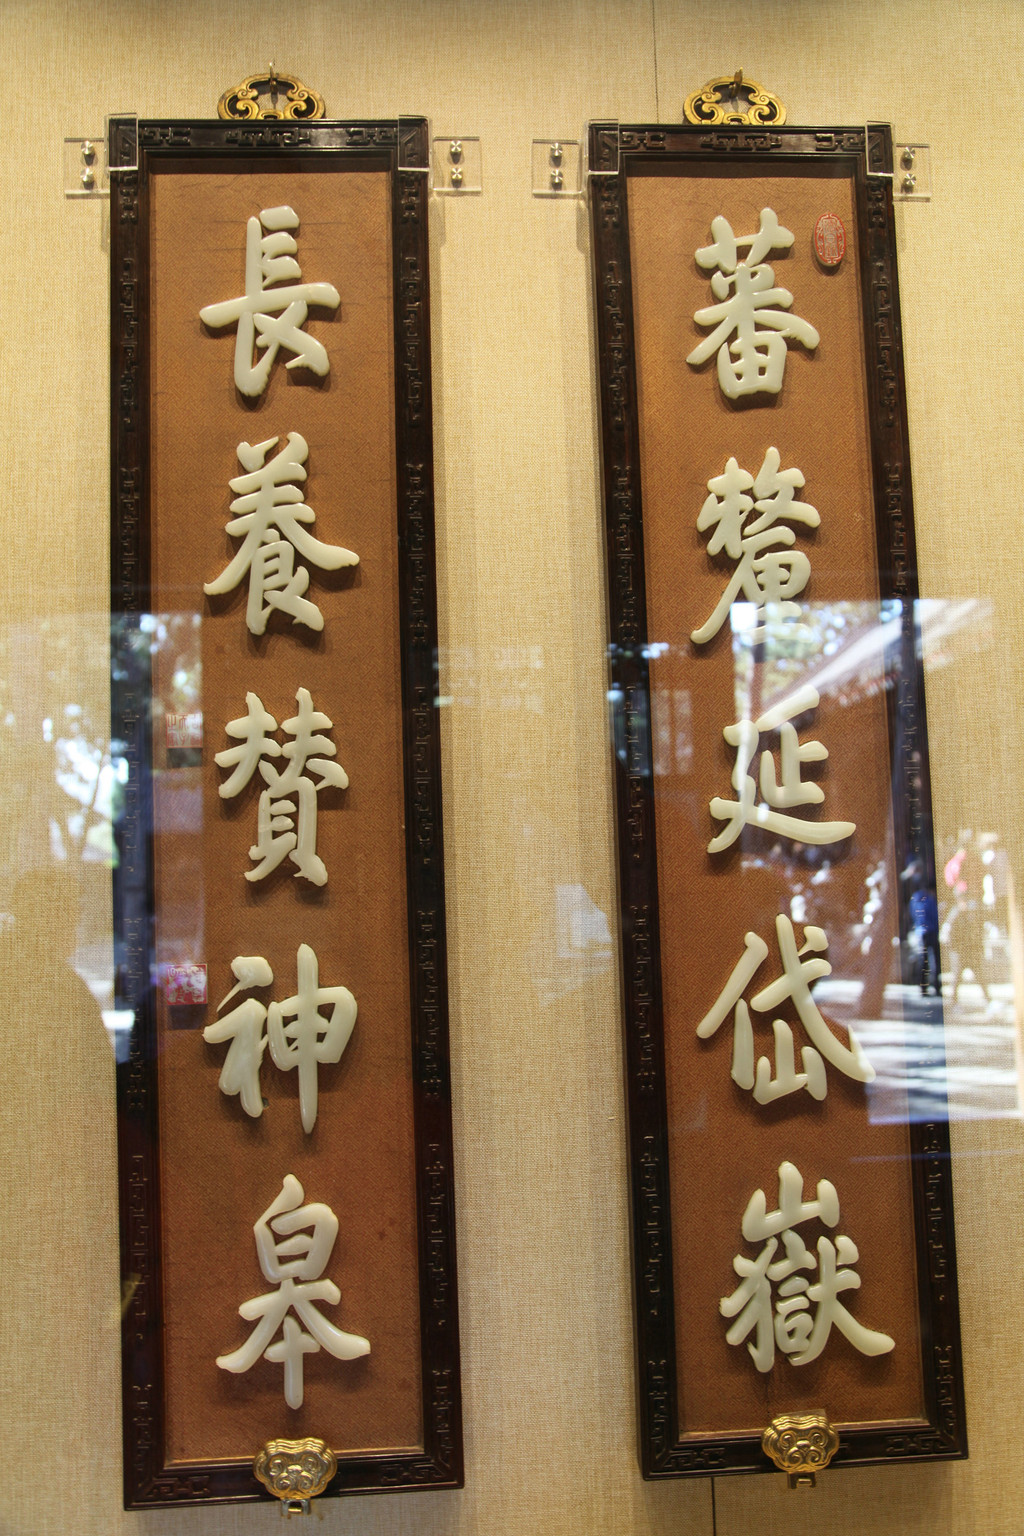 蕃釐延岱嶽
長養賛神皋